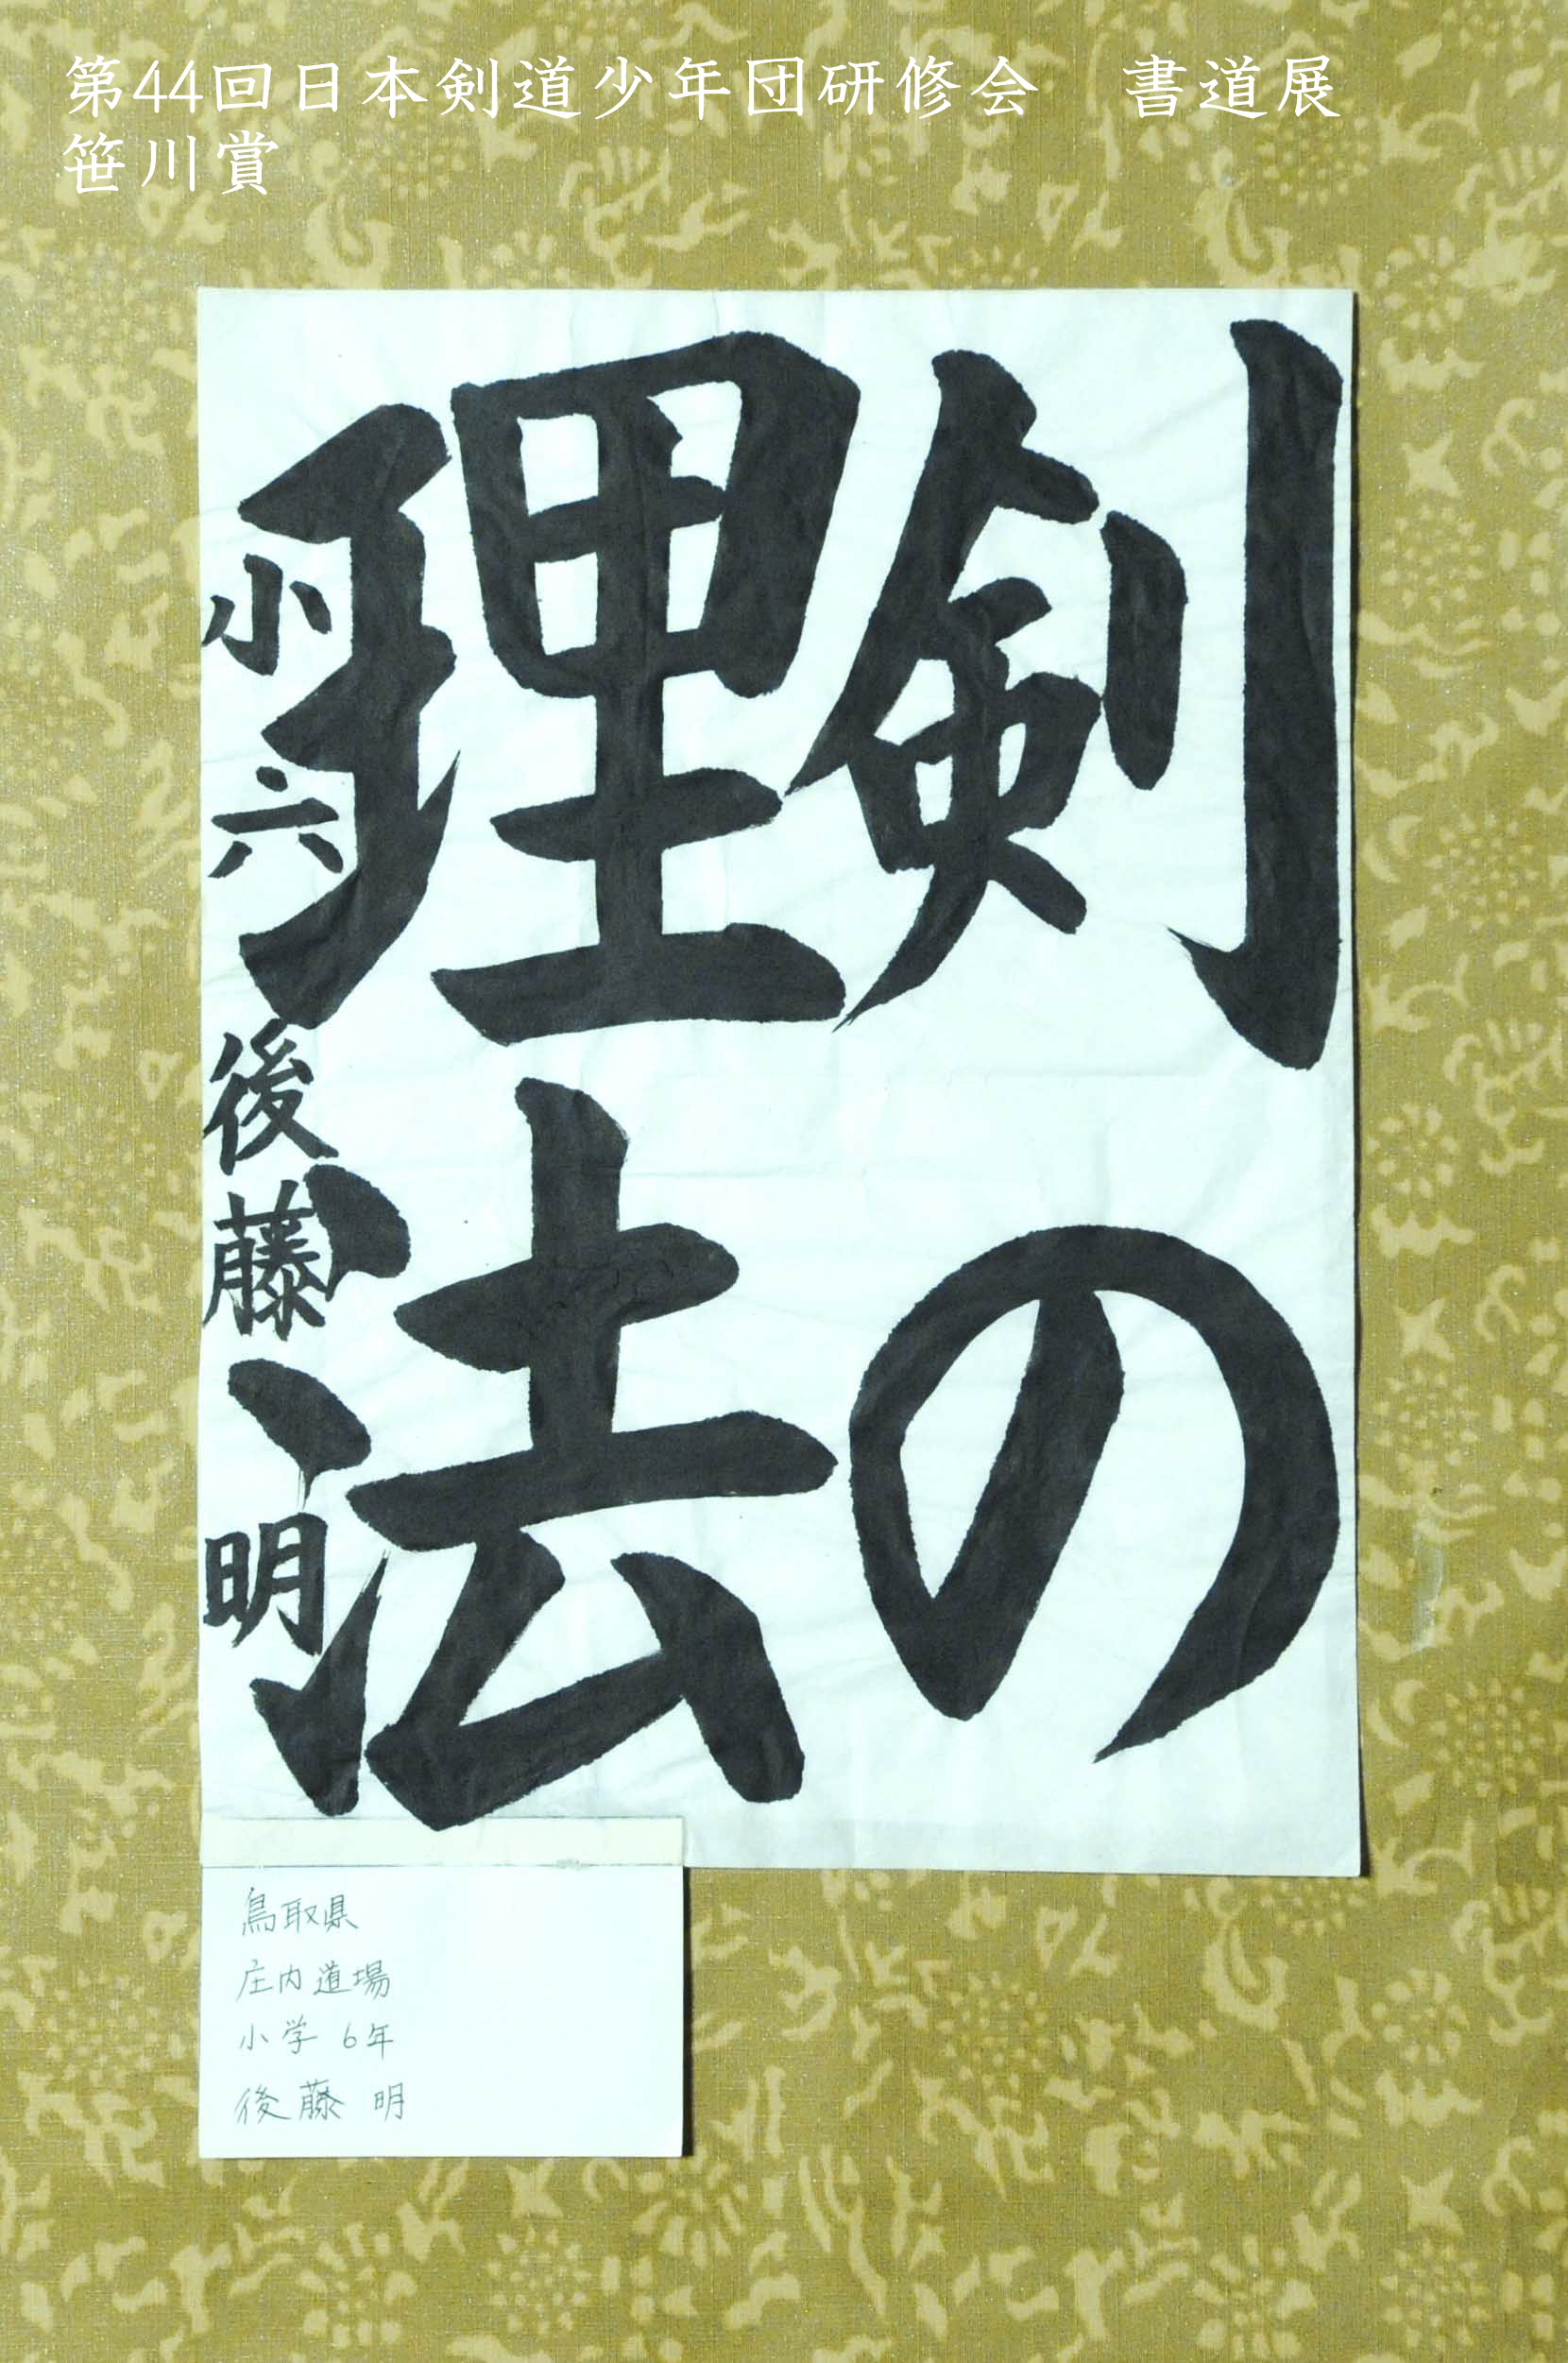 第44回日本剣道少年団研修会　書道展
笹川賞
剣の
理法
小六 後藤 明
鳥取県
庄内道場
小学 6年
後藤 明